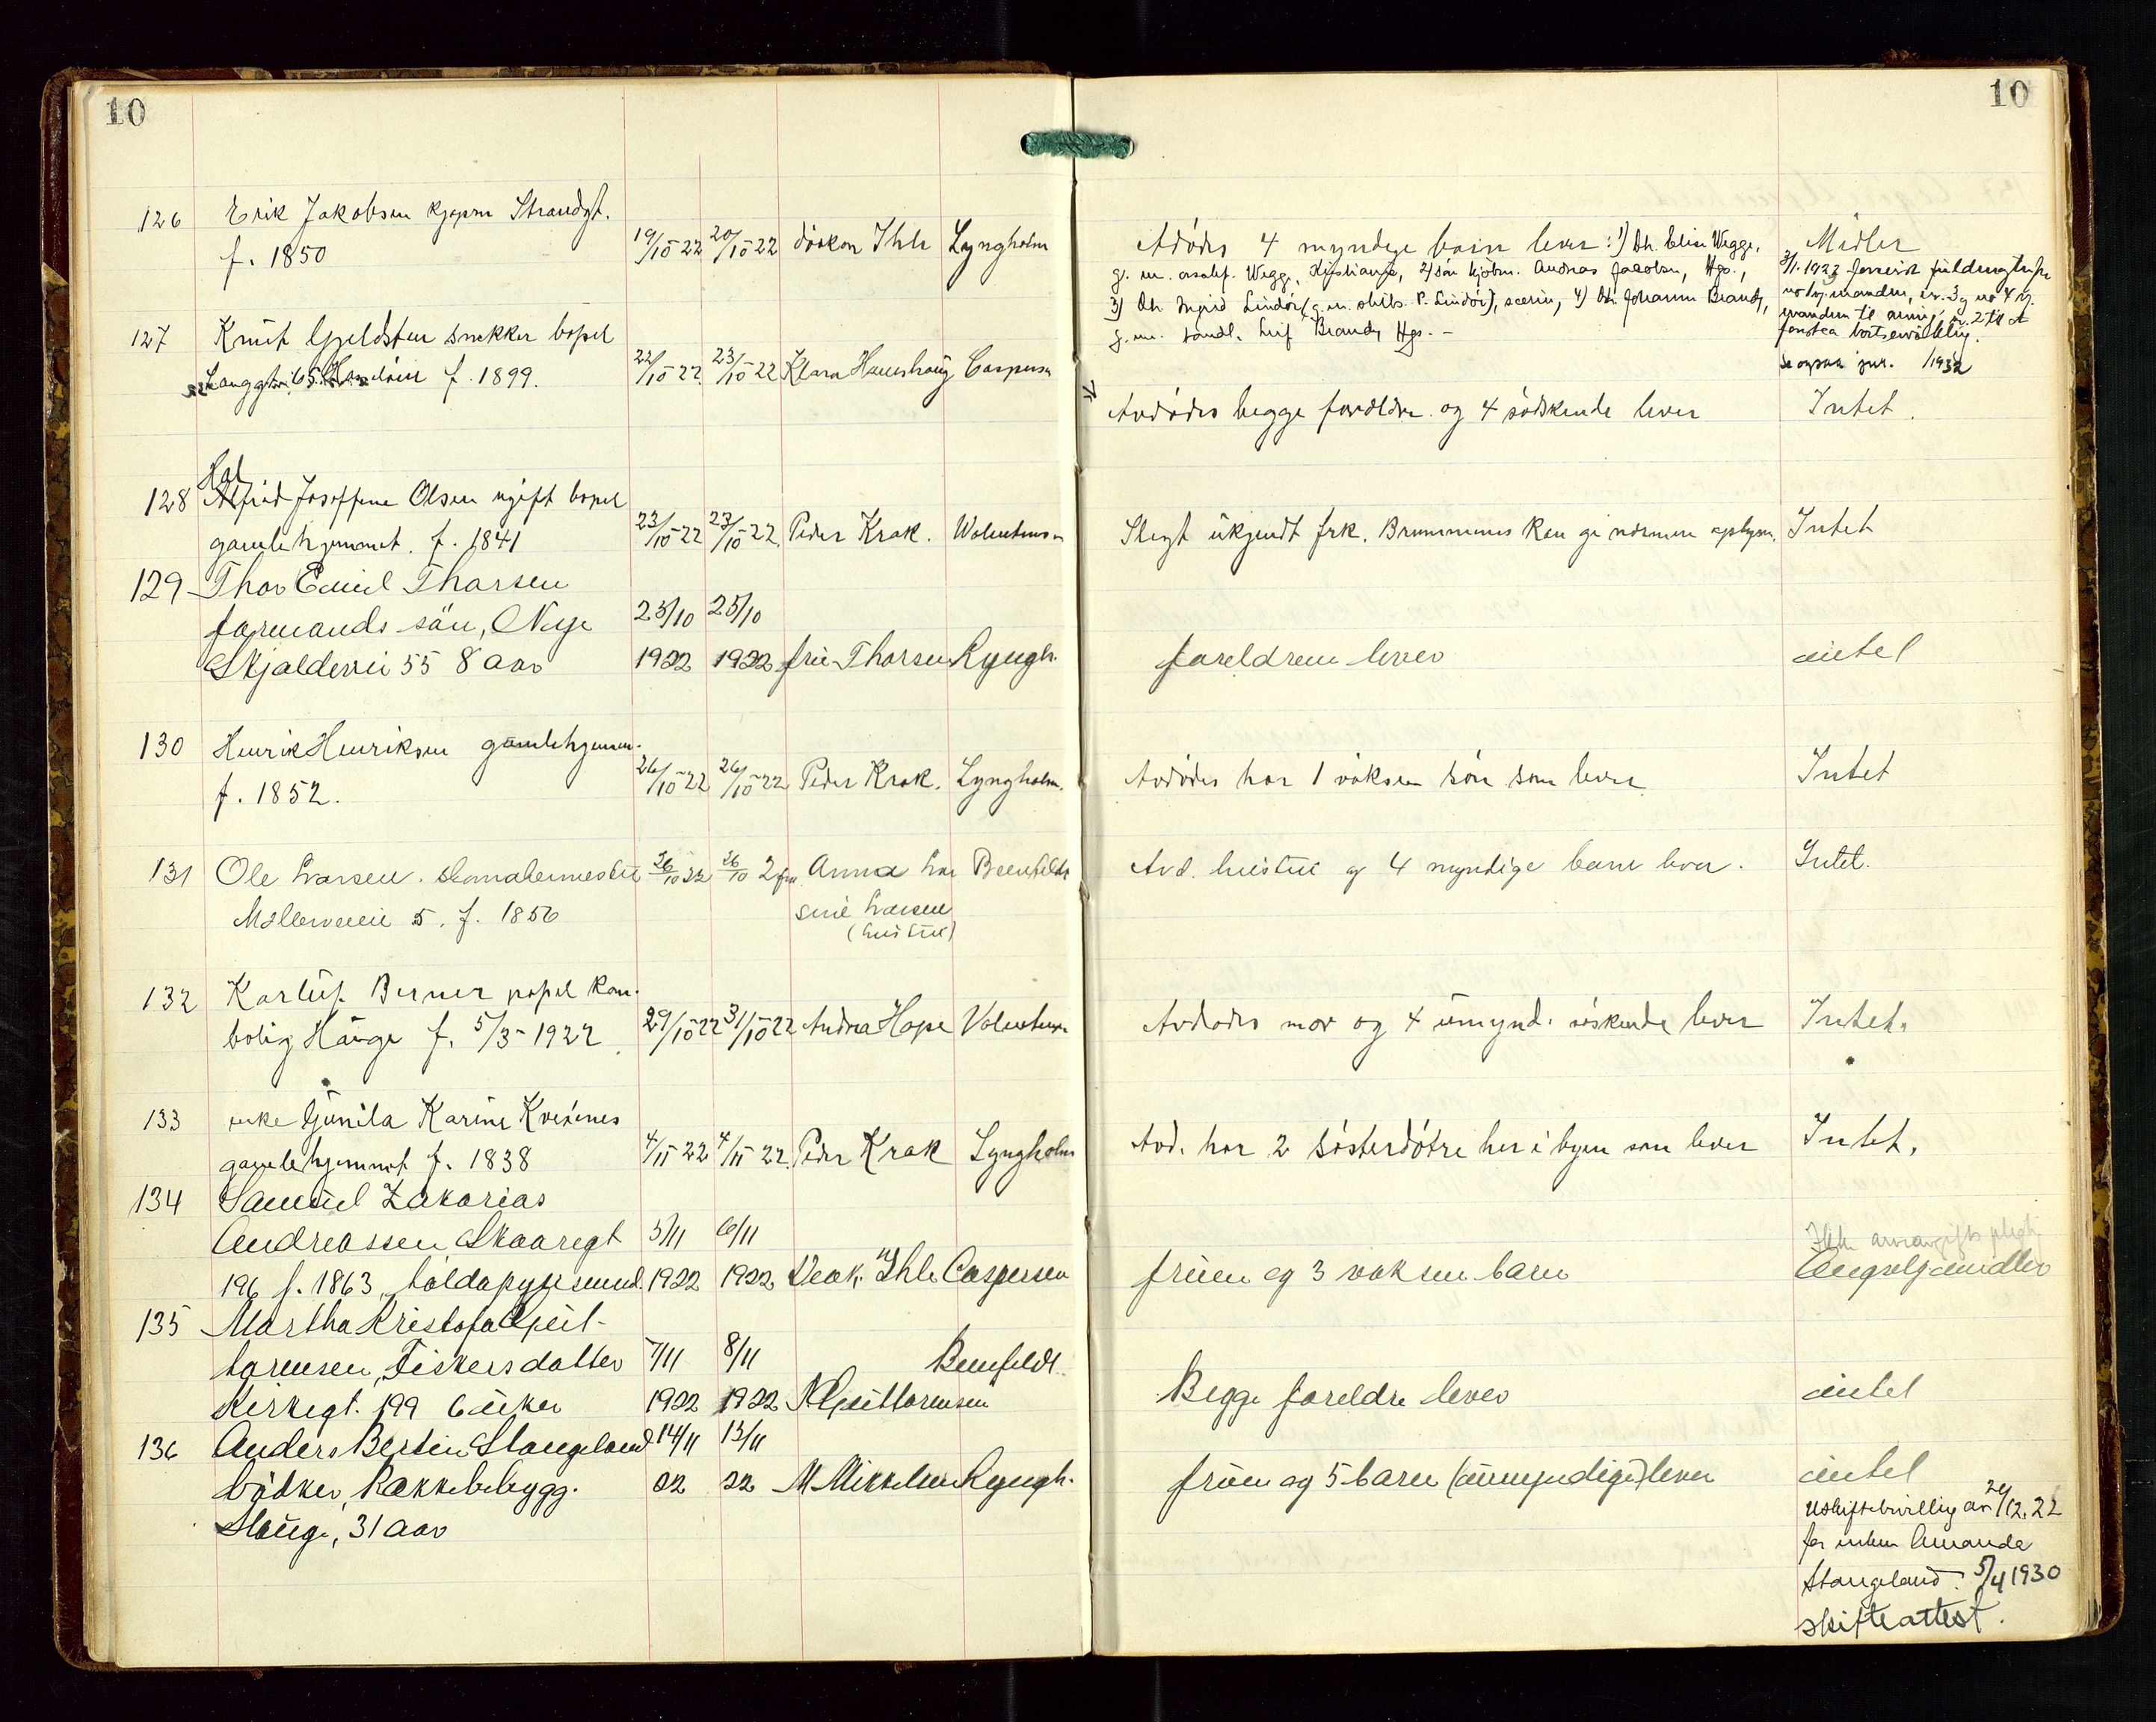 10
10
126 Erik Jakobsen kjøpm Strandgt.
f. 1850
19/10 22 20/10 22 diakon Ihle Lyngholm
Adødes 4 myndige barn lever: 1) Dtr. Elise Wegge,
g. m. Wegge, Kristiania, 2) søn kjøbm. Andreas Jacobsen, Hgs.,
3) Dtr. Ingrid Lindøe (g. m. skibs. P. Lindøe), 4) Dtr. Johanna Brandy,
g. m. Leif Brandy Hgs. –
Midler
3/1. 1923
1932
127 Knut Gjeldsten snekker bopel
Langgt. 65 f. 1899.
22/10 22 23/10 22 Klara Haueshaug Caspersen
Avdødes begge foreldre og 4 sødskende lever
Intet.
128 Alfrid Josefine Olsen ugift bopel
gamlehjemmet. f. 1841
23/10 22 23/10 22 Peder Krak. Wolentinsen
Slegt ukjendt frk. Brummenes kan gi nærmere oplysn.
Intet
129 Thor Emil Thorsen
formands søn, Nye
Skjoldevei 55 8 aar
23/10 25/10
1922 1922 fru Thorsen Lyngh.
foreldrene lever
intet
130 Henrik Henriksen gamlehjemm.
f. 1852.
26/10 22 26/10 22 Peder Krak. Lyngholm.
Avdødes har 1 voksen søn som lever
Intet
131 Ole Larsen. skomakermester
Møllerveien 5. f. 1856
26/10 22 26/10 2 fru Anna Lar Beenfeldt
sine Larsen
(hustru)
Avd. hustru og 4 myndige barn lever.
Intet.
132 Karluf Berner popel kom.
bolig Hauge f. 5/5 1922
29/10 22 31/10 22 Andrea Hope Volentinsen
Avdødes mor og 4 umynd. søskende lever
Intet.
133 enke Gunila Karine Kvesines
gamlehjemmet f. 1838
4/11 22 4/11 22 Peder Krak Lyngholm
Avd. har 2 søsterdøtre her i byen som lever
Intet.
134 Samuel Zakarias
Andreassen Skaaregt
196 f. 1863, toldopsynsmand.
5/11 6/11
1922 1922 Deak. Ihle Caspersen
fruen og 3 voksne barn
Ikke arveavgifts pligtig
135 Martha Kristofa Gut-
tormsen, Fiskers datter
Kirkegt. 199 6 uker
7/11 8/11 Benfeldt
1922 1922 N Guttormsen
Begge foreldre lever
intet
136 Anders Bertin Stangeland
bødker, Rakkebebygg.
Hauge, 31 aar
14/11 13/11
22 22 M Mikkelsen Lyngh.
fruen og 5 barn (umyndige) lever
intet
Uskiftebevilling av 29/12. 22
for enken Amanda
Stangeland. 5/4 1930
skifteattest.